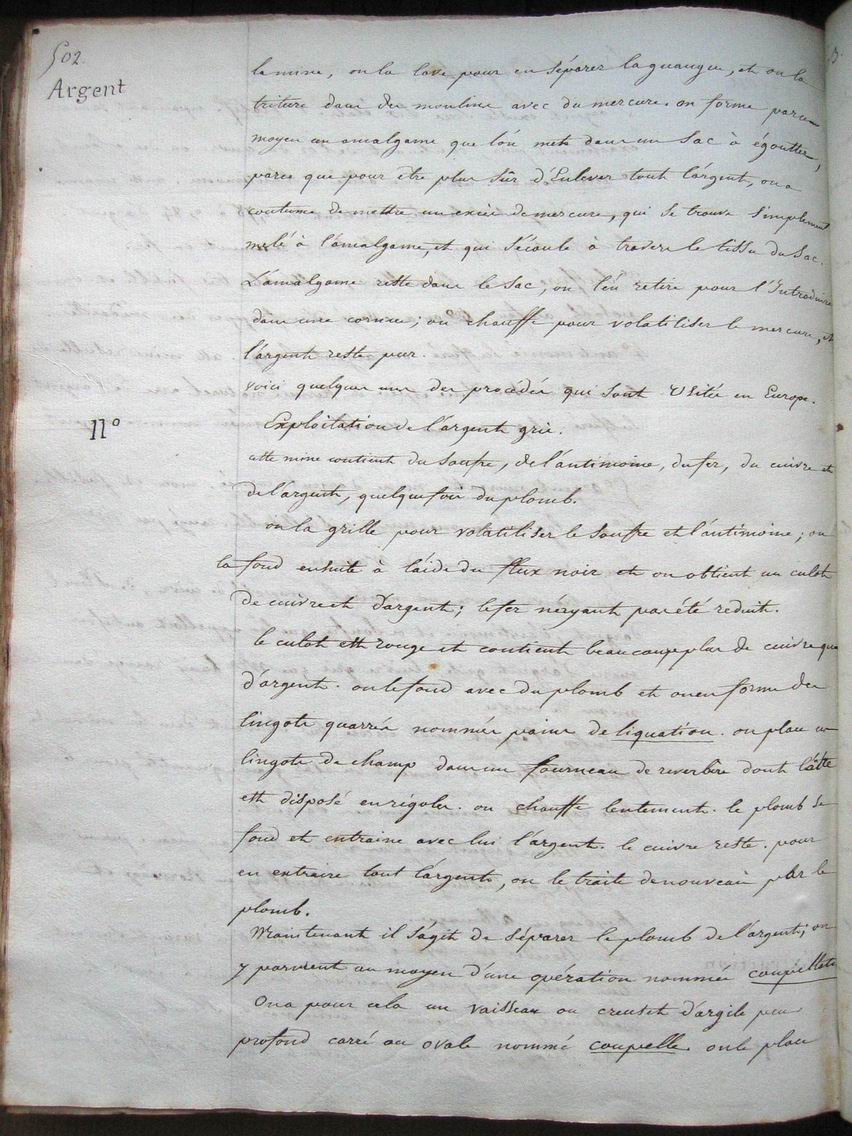 502.
Argent
la mine, on la lave pour en séparer la guangue, et on la
triture dans des moulins avec du mercure. on forme par ce
moyen un amalgame que l'on mets dans un sac à égoutter,
parce que pour être plus sûr d'Enlever tout l'argent, on a
coutume de mettre un excès de mercure, qui se trouve simplement
melé à l'amalgame, et qui s'écoule à travers le tissu du sac.
L'amalgame reste dans le sac, on l'en retire pour l'Introduire
dans une cornue, on chauffe pour volatiliser le mercure, et
l'argent reste pur.
voici quelques uns des procédés qui sont Usités en Europe.
11°
Exploitation de l'argent gris.
cette mine contient du soufre, de l'antimoine, du fer, du cuivre et
de l'argent, quelquefois du plomb.
on la grille pour volatiliser le soufre et l'antimoine; on
la fond ensuite à l'aide du flux noir et on obtient un culot
de cuivre et d'argent; le fer n'ayant pas été reduit.
le culot est rouge et contient beaucoup plus de cuivre que
d'argent. on le fond avec du plomb et on en forme des
lingots quarrés nommés pains de liquation. on place ces
lingots de champ dans un fourneau de reverbère dont l'âtre
est disposé en rigoles. on chauffe lentement. le plomb se
fond et entraine avec lui l'argent. le cuivre reste. pour
en extraire tout l'argent, on le traite de nouveau par le
plomb.
Maintenant il s'agit de séparer le plomb de l'argent; on
y parvient au moyen d'une opération nommée
On a pour cela un vaisseau ou creuset d'argile peu
profond carré ou ovale nommé coupelle. on le place